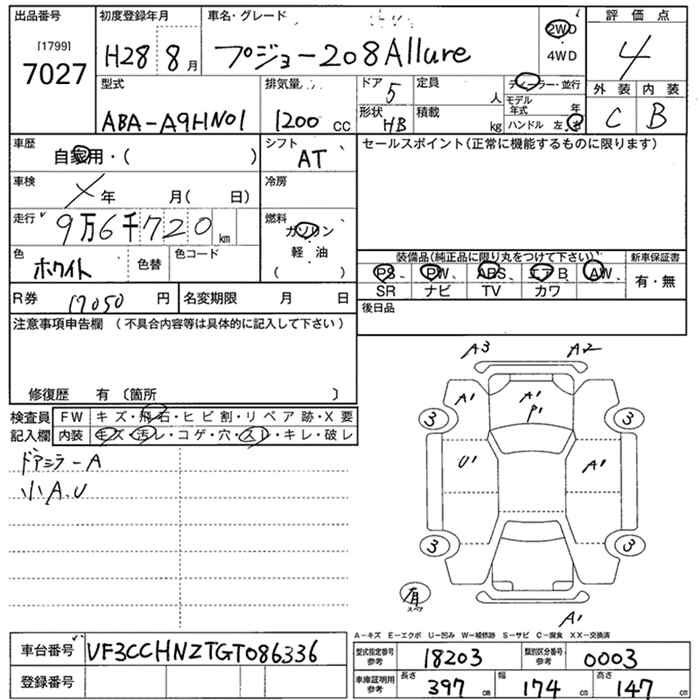 出品番号 初度登録年月 車名・グレード 2WD 評価点
[1799] 7027 H28 8月 プジョー208Allure ・4WD 4
型式 排気量 ドア 5 定員 人 ディーラー・並行 外装 内装
ABA-A9HN01 1200 cc 形状 HB 積載 kg モデル年式 年 C B
ハンドル 左・右
車歴 自家用・( ) シフト AT セールスポイント(正常に機能するものに限ります)
車検 年 月( 日) 冷房
走行 9万6千720km 燃料 ガソリン
軽・油
( )
色 ホワイト 色替 色コード 装備品(純正品に限り丸をつけて下さい) 新車保証書
PS、 PW、 ABS、 エアB、 AW、 有・無
R券 17050 円 名変期限 月 日 SR ナビ TV カワ
注意事項申告欄 (不具合内容等は具体的に記入して下さい) 後日品
修復歴 有 〔箇所 〕
検査員 FW キズ・飛石・ヒビ割・リペア跡・X要
記入欄 内装 キズ・汚レ・コゲ・穴・スレ・キレ・破レ
ドアミラーA
小A.U
A3 A2
A' A' P'
3 3
U' A'
3 3
有 スペア
A'
A-キズ E-エクボ U-凹み W-補修跡 S-サビ C-腐食 XX-交換済
車台番号 VF3CCHNZTGT086336 型式指定番号 参考 18203 類別区分番号 参考 0003
登録番号 車庫証明用 参考 長さ 397cm 幅 174cm 高さ 147cm